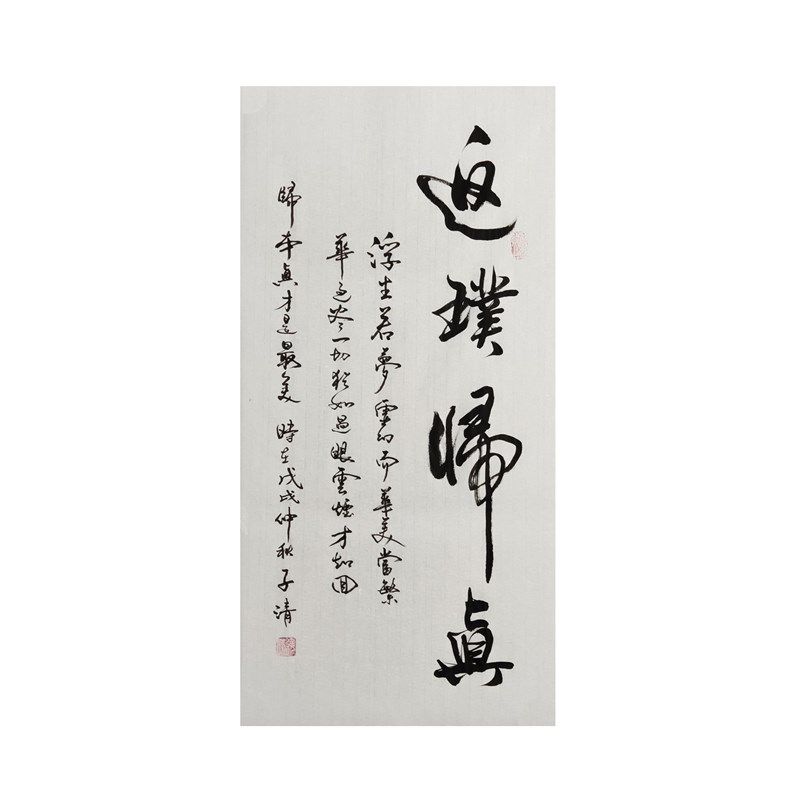 返璞歸真
浮生若夢虛幻而華美當繁
華過盡一切猶如過眼雲煙才知回
歸本真才是最美 時在戊戌仲秋 子清